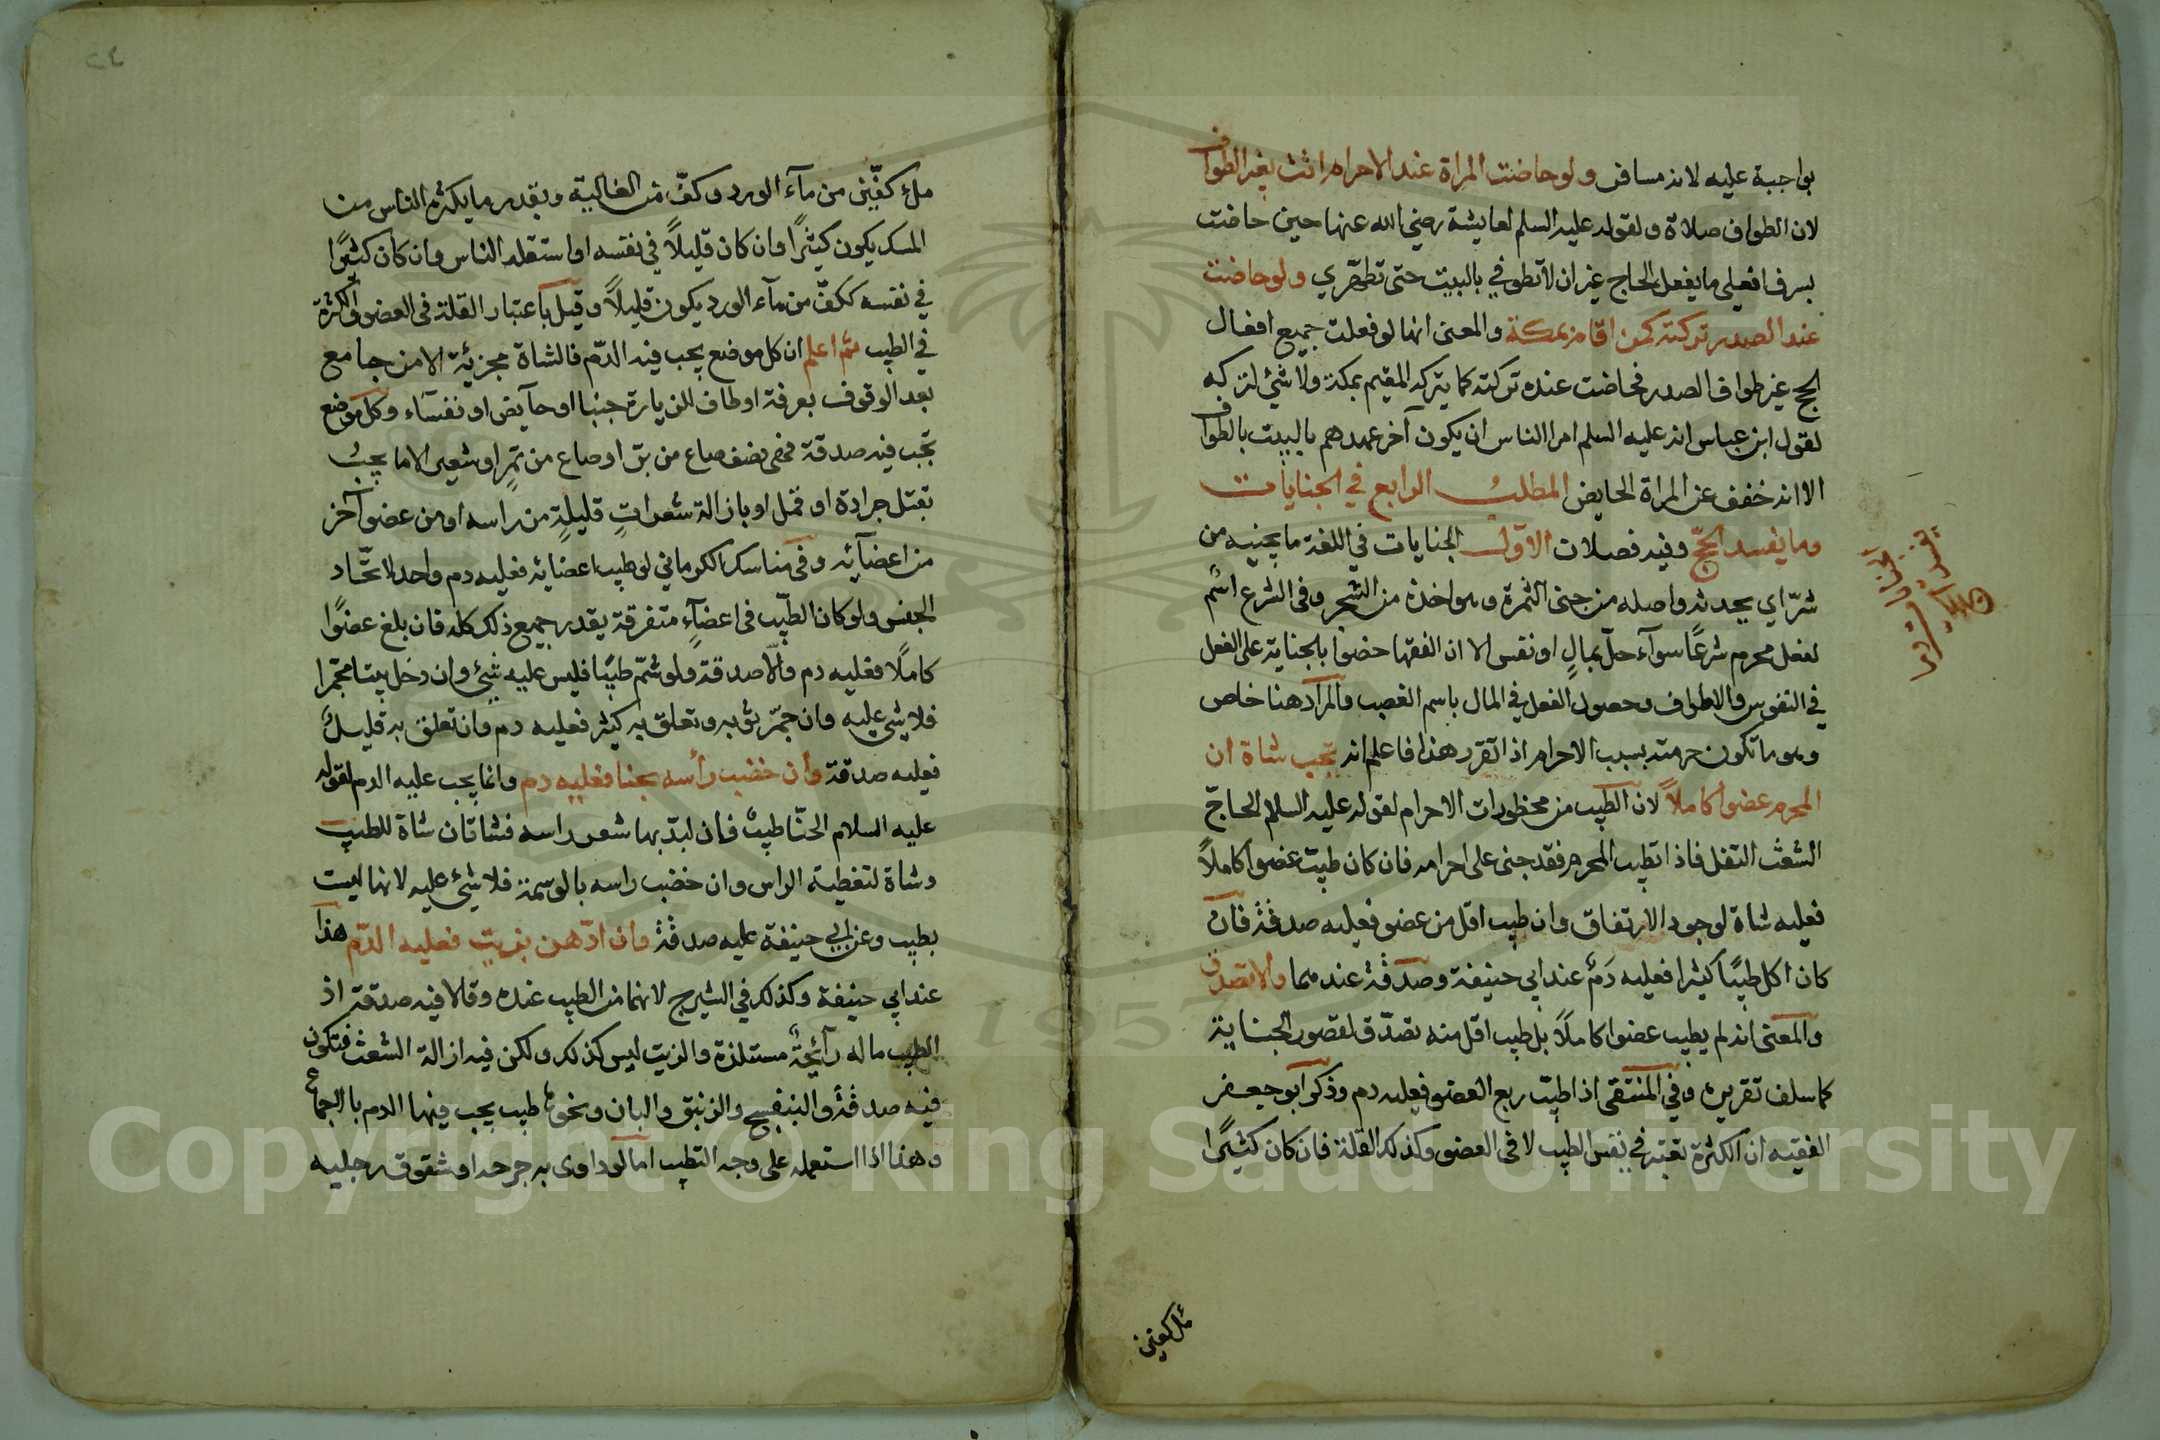 بواجبة عليه لانه مسافر ولو حاضت المراة عند الاحرام اتت بغير الطواف
لان الطواف صلاة ولقوله عليه السلم لعايشة رضي الله عنها حين حاضت
بسرف افعلي ما يفعل الحاج غير ان لا تطوفي بالبيت حتى تطهري ولو حاضت
عند الصدر تركته كمن اقام بمكة والمعنى انها لو فعلت جميع افعال
الحج غير طواف الصدر فحاضت عنده تركته كما يتركه المقيم بمكة ولا شئ لتركه
لقول ابن عباس انه عليه السلم امر الناس ان يكون آخر عهدهم بالبيت بالطواف
الا انه خفف عن المراة الحايض المطلب الرابع في الجنايات
وما يفسد الحجّ وفيه فصلان الاوّل الجنايات في اللغة ما يجنيه من
شرّ اي يحدثه واصله من جنى الثمرة وهو اخذه من الشجر وفي الشرع اسم
لفعل محرم شرعًا سوآء حلّ بمالٍ او نفس الا ان الفقها خصوا بالجناية على الفعل
في النفوس والاطراف وحصول الفعل في المال باسم الغصب والمراد هنا خاص
وهو ما تكون حرمته بسبب الاحرام اذا تقرر هذا فاعلم انه تجب شاة ان
المحرم عضوا كاملاً لان الطيب من محظورات الاحرام لقوله عليه السلم الحاجّ
الشعث التفل فاذا تطيب المحرم فقد جنى على احرامه فان كان طيب عضوا كاملاً
فعليه شاة لوجود الارتفاق وان طيب اقل من عضو فعليه صدقة فان
كان اكل طيبًا كثيرا فعليه دَمٌ عند ابي حنيفة وصدقة عندهما والا تصدق
والمعنى انه لم يطيب عضوا كاملاً بل طيب اقل منه تصدّق لقصور الجناية
كما سلف تقريره وفي المنتقى اذا طيّب ربع العضو فعليه دم وذكر ابو جعفر
الفقيه ان الكثرة تعتبر في نفس الطيب لا في العضو وكذلك القلة فان كان كثيرًا
ملء كفين
ملء كفّين من مآء الورد وكفّ من الغالية وبقدر ما يكثره الناس من
المسك يكون كثيرًا وان كان قليلاً في نفسه او استقله الناس وان كان كثيرًا
في نفسه ككفّ من مآء الورد يكون قليلاً وقيل باعتبار القلة في العضو والكثرة
في الطيب ثم اعلم ان كل موضع يجب فيه الدّم فالشاة مجزئة الا من جامع
بعد الوقوف بعرفة او طاف للزيارة جنبا او حآيض او نفسآء وكل موضع
تجب فيه صدقة فهي نصف صاع من برّ او صاع من تمرٍ او شعير الا ما يجب
بقتل جرادة او قمل او بازالة شعراتٍ قليلةٍ من راسه او من عضو آخر
من اعضآئه وفي مناسك الكرماني لو طيب اعضايه فعليه دم واحد لاتحّاد
الجنس ولو كان الطّيب في اعضآءٍ متفرقة يقدر جميع ذلك كله فان بلغ عضوًا
كاملاً فعليه دم والّا صدقة ولو شمّ طيبًا فليس عليه شئ وان دخل بيتا مجمّرا
فلا شئ عليه وان جمّر ثوبه وتعلق به كثير فعليه دم وان تعلق به قليل
فعليه صدقة وان خضب رأسه بحنا فعليه دم وانما يجب عليه الدم لقوله
عليه السلام الحنّا طيبٌ فان لبدّ بها شعر راسه فشاتان شاة للطيب
وشاة لتغطية الراس وان خضب راسه بالوسمة فلا شئ عليه لانها ليست
بطيب وعن ابي حنيفة عليه صدقة وان ادّهن بزيت فعليه الدّم هذا
عند ابي حنيفة وكذلك في الشيرج لانهما من الطيب عنده وقالا فيه صدقة اذ
الطيب ما له رآئحةٌ مستلذة والزيت ليس كذلك ولكن فيه ازالة الشعث فتكون
فيه صدقة والبنفسج والزنبق والبان ونحوه طيب يجب فيها الدم بالاجماع
وهذا اذا استعمله على وجه التطيب اما لو داوى به جرحه او شقوق رجليه
Copyright © King Saud University
1957